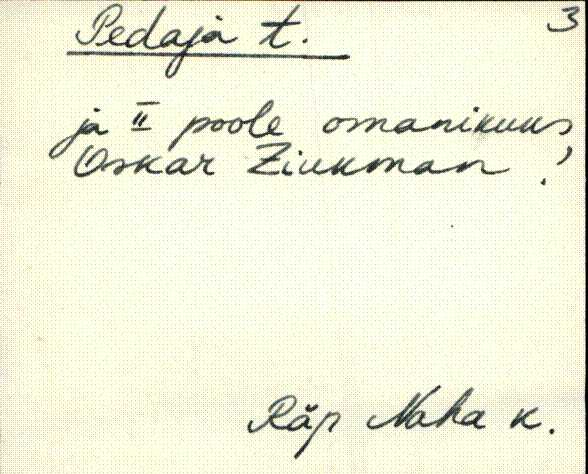 3
Pedaja t.
ja II poole omanikuks
Oskar Ziukman.
Räp Naha k.